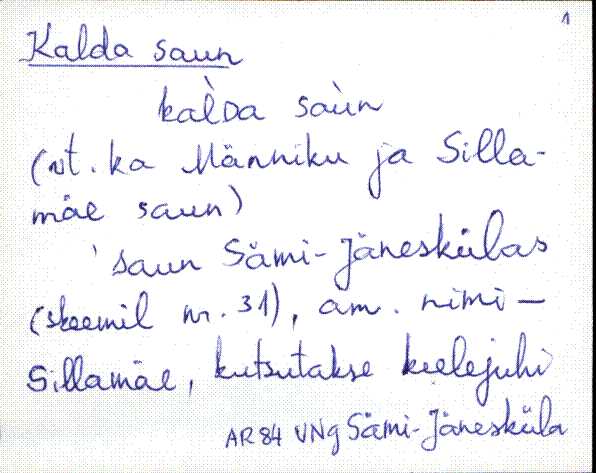 1
Kalda saun
kal̀da saùn
(vt. ka Männiku ja Silla-
mäe saun)
'saun Sämi-Jäneskülas
(skeemil nr. 31), am. nimi –
Sillamäe, kutsutakse keelejuhi
AR84 VNg Sämi-Jänesküla